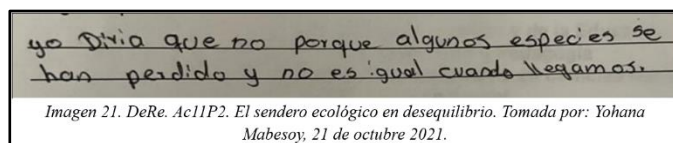 yo Diria que no porque algunos especies se
han perdido y no es igual cuando llegamos.
Imagen 21. DeRe. Ac11P2. El sendero ecológico en desequilibrio. Tomada por: Yohana
Mabesoy, 21 de octubre 2021.